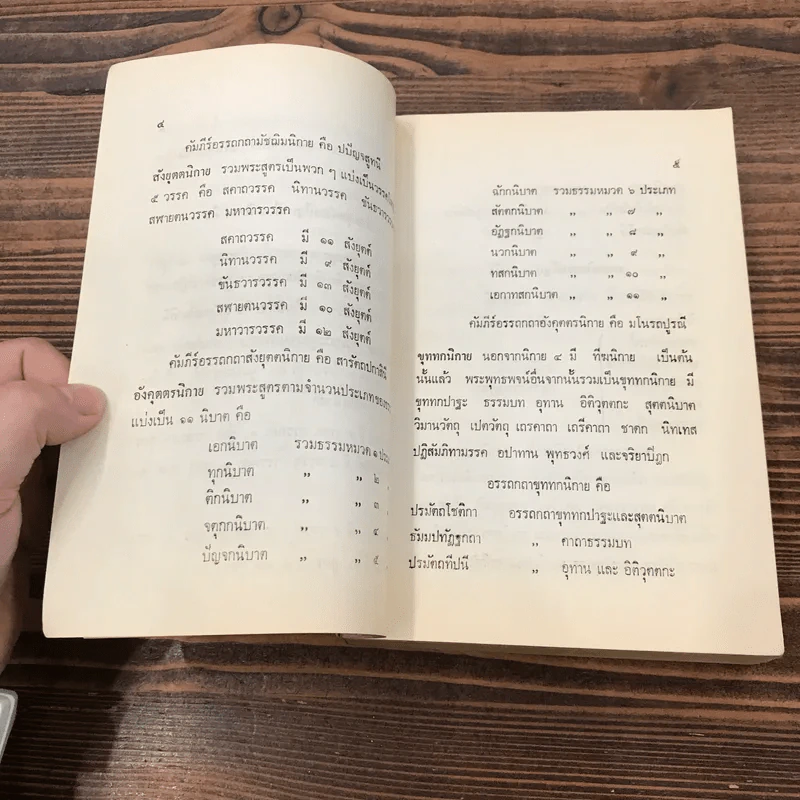 ๔
คัมภีร์อรรถกถามัชฌิมนิกาย คือ ปปัญจสูทนี
สังยุตตนิกาย รวมพระสูตรเป็นพวก ๆ แบ่งเป็นวรรค
๕ วรรค คือ สคาถวรรค นิทานวรรค ขันธวารวรรค
สพายตนวรรค มหาวารวรรค
สคาถวรรค มี ๑๑ สังยุตต์
นิทานวรรค มี ๙ สังยุตต์
ขันธวารวรรค มี ๑๓ สังยุตต์
สพายตนวรรค มี ๑๐ สังยุตต์
มหาวารวรรค มี ๑๒ สังยุตต์
คัมภีร์อรรถกถาสังยุตตนิกาย คือ สารัตถปกาสินี
อังคุตตรนิกาย รวมพระสูตรตามจำนวนประเภทของ
แบ่งเป็น ๑๑ นิบาต คือ
เอกนิบาต รวมธรรมหมวด ๑
ทุกนิบาต ,, ,, ๒
ติกนิบาต ,, ,, ๓
จตุกกนิบาต ,, ,, ๔
ปัญจกนิบาต ,, ,, ๕
๕
ฉักกนิบาต รวมธรรมหมวด ๖ ประเภท
สัตตกนิบาต ,, ,, ๗ ,,
อัฏฐกนิบาต ,, ,, ๘ ,,
นวกนิบาต ,, ,, ๙ ,,
ทสกนิบาต ,, ,, ๑๐ ,,
เอกาทสกนิบาต ,, ,, ๑๑ ,,
คัมภีร์อรรถกถาอังคุตตรนิกาย คือ มโนรถปูรณี
ขุททกนิกาย นอกจากนิกาย ๔ มี ทีฆนิกาย เป็นต้น
นั้นแล้ว พระพุทธพจน์อื่นจากนั้นรวมเป็นขุททกนิกาย มี
ขุททกปาฐะ ธรรมบท อุทาน อิติวุตตกะ สุตตนิบาต
วิมานวัตถุ เปตวัตถุ เถรคาถา เถรีคาถา ชาดก นิทเทส
ปฏิสัมภิทามรรค อปาทาน พุทธวงศ์ และจริยาปิฎก
อรรถกถาขุททกนิกาย คือ
ปรมัตถโชติกา อรรถกถาขุททกปาฐะและสุตตนิบาต
ธัมมปทัฏฐกถา ,, คาถาธรรมบท
ปรมัตถทีปนี ,, อุทาน และ อิติวุตตกะ